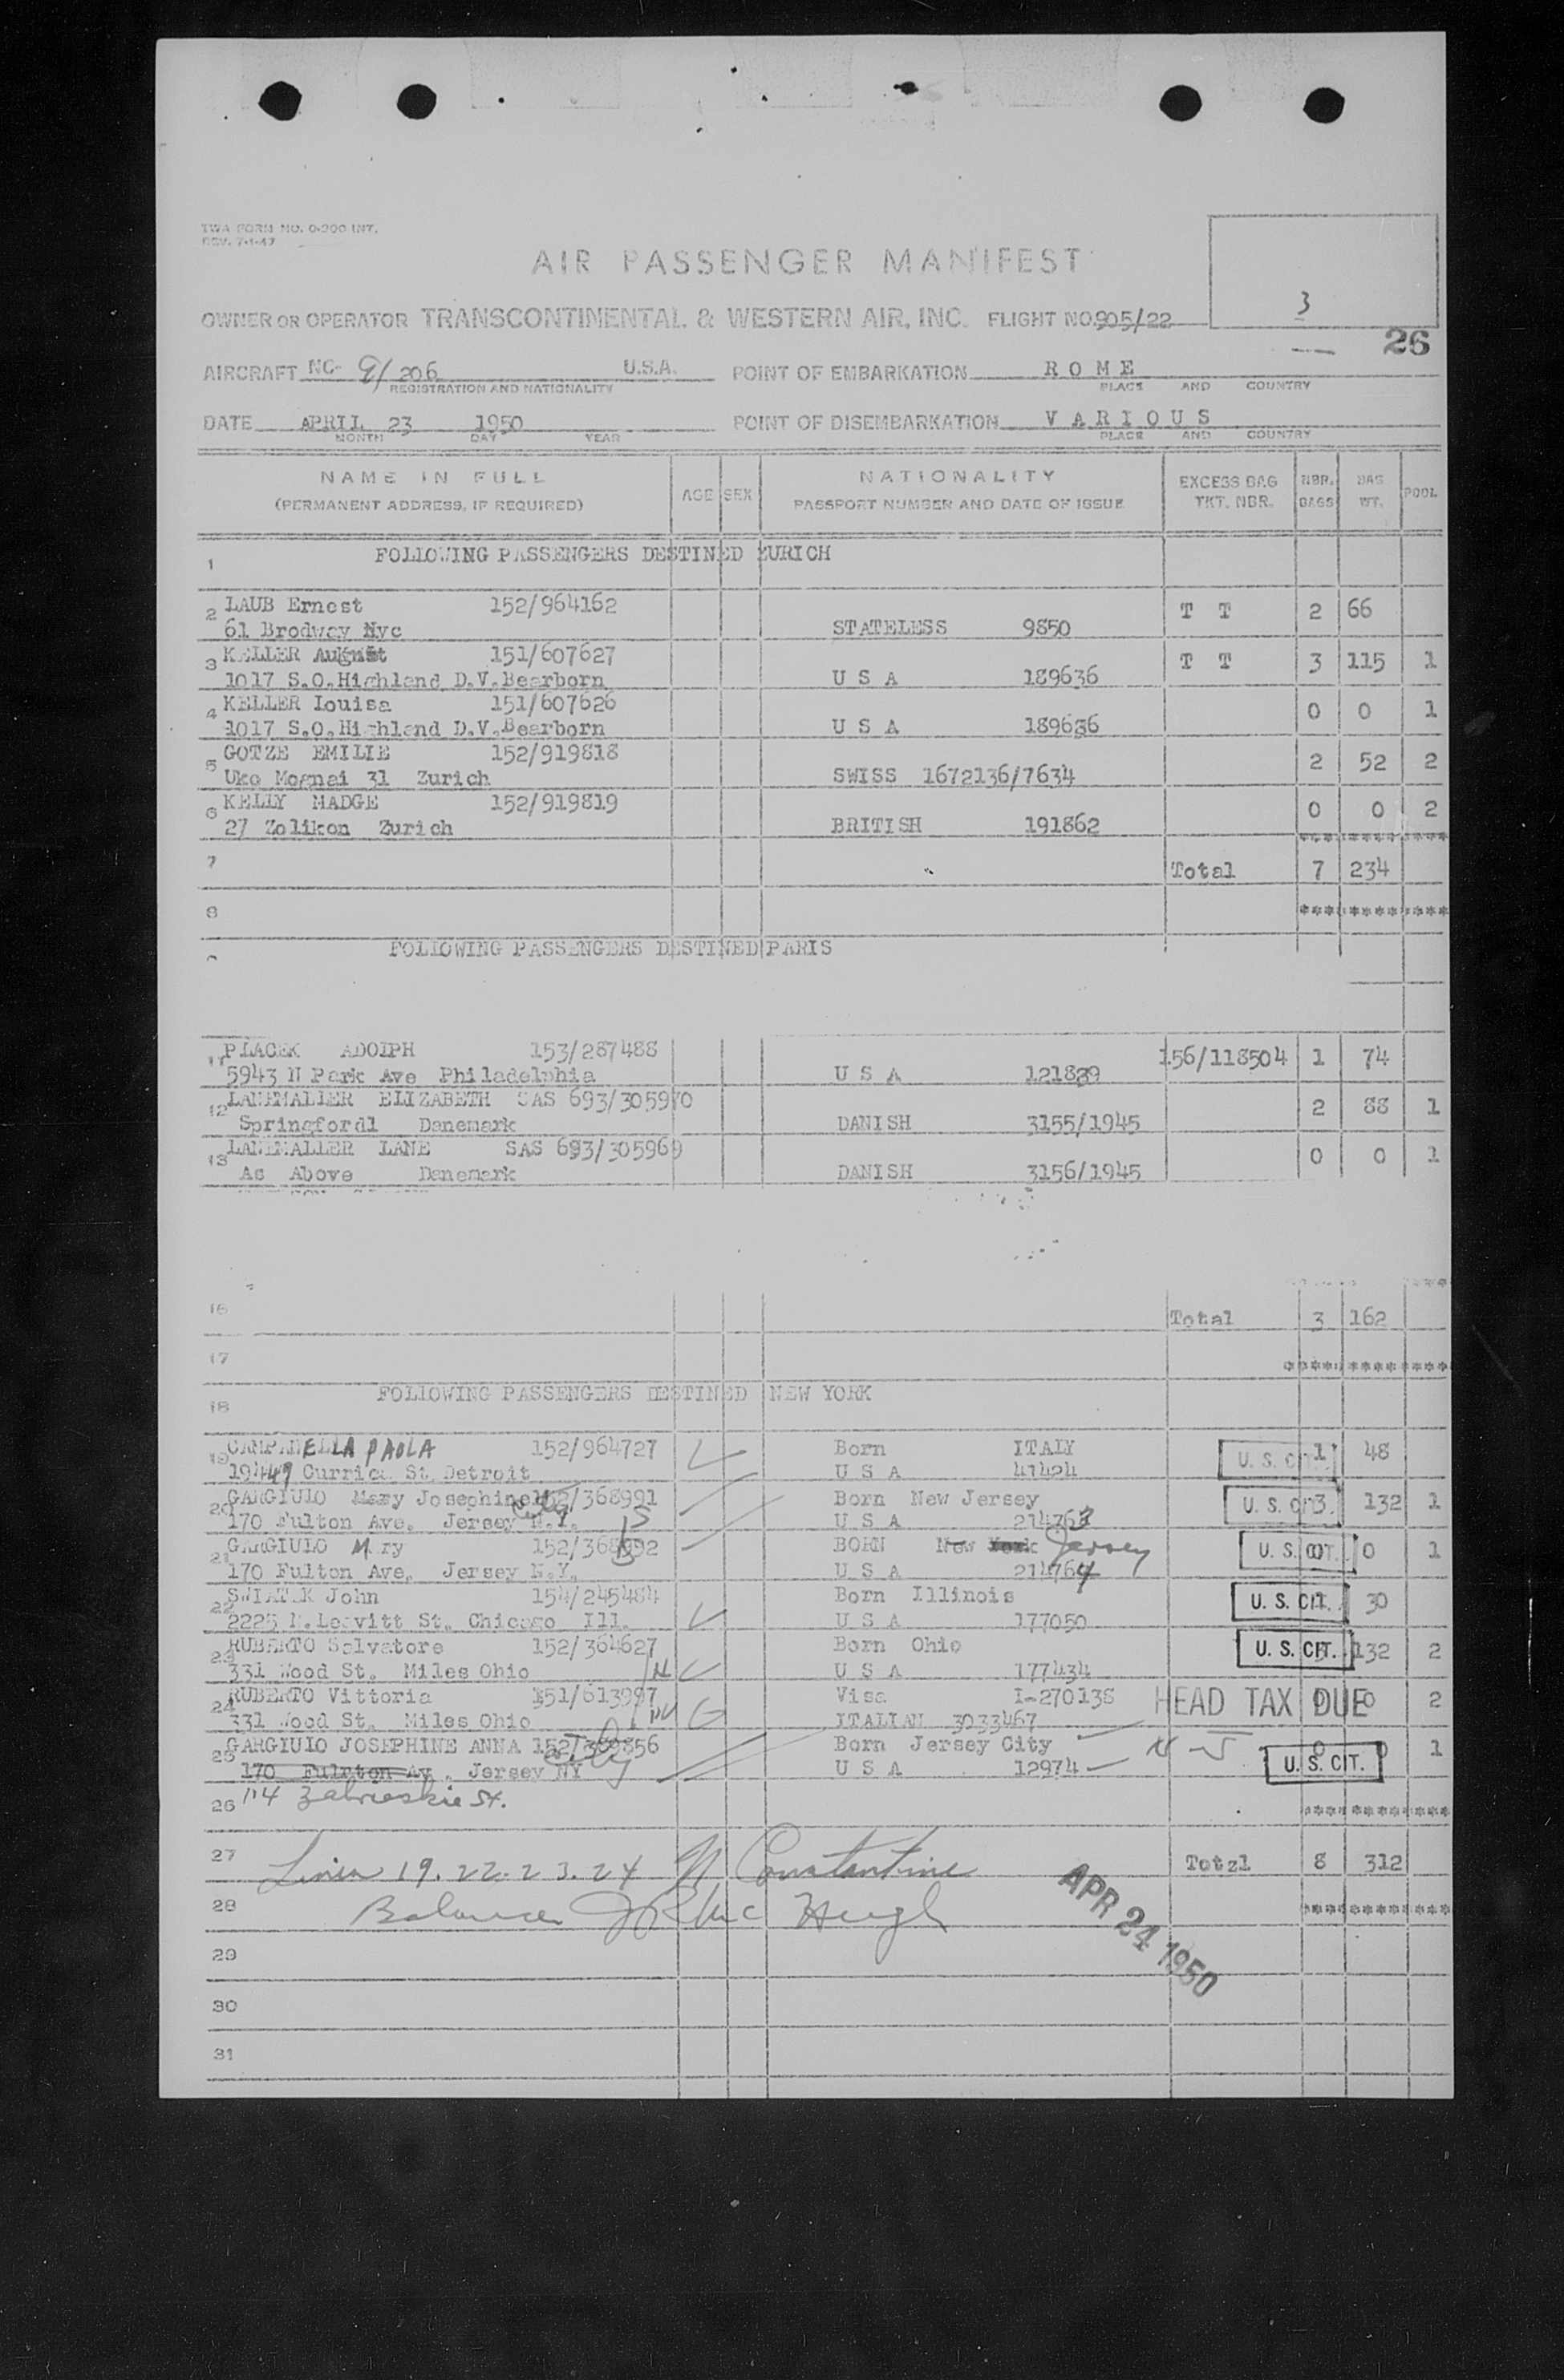 TWA FORM NO. 0-200 INT.
REV. 7-1-47
AIR PASSENGER MANIFEST
3
OWNER OR OPERATOR TRANSCONTINENTAL & WESTERN AIR, INC. FLIGHT NO. 905/22
26
AIRCRAFT NC- 9/206 U.S.A. POINT OF EMBARKATION R O M E
REGISTRATION AND NATIONALITY PLACE AND COUNTRY
DATE APRIL 23 1950 POINT OF DISEMBARKATION V A R I O U S
MONTH DAY YEAR PLACE AND COUNTRY
NAME IN FULL (PERMANENT ADDRESS, IF REQUIRED) AGE SEX NATIONALITY PASSPORT NUMBER AND DATE OF ISSUE EXCESS BAG TKT. NBR. NBR. BAGS BAG WT. POOL
1 FOLLOWING PASSENGERS DESTINED ZURICH
2 LAUB Ernest 152/964162 T T 2 66
61 Brodway Nyc STATELESS 9850
3 KELLER August 151/607627 T T 3 115 1
1017 S.O.Highland D.V.Bearborn U S A 189636
4 KELLER Louisa 151/607626 0 0 1
1017 S.O.Highland D.V.Bearborn U S A 189636
5 GOTZE EMILIE 152/919818 2 52 2
Uko Mognai 31 Zurich SWISS 1672136/7634
6 KELLY MADGE 152/919819 0 0 2
27 Zolikon Zurich BRITISH 191862
7 Total 7 234
8 ***********
FOLLOWING PASSENGERS DESTINED PARIS
11 PLACEK ADOLPH 153/287488 156/118504 1 74
5943 N Park Ave Philadelphia U S A 121829
12 ELIZABETH SAS 693/305970 2 88 1
Springfordl Danemark DANISH 3155/1945
13 LANE SAS 693/305969 0 0 1
As Above Danemark DANISH 3156/1945
16 Total 3 162
17 ************
18 FOLLOWING PASSENGERS DESTINED NEW YORK
19 CAMPANELLA PAOLA 152/964727 Born ITALY U.S. CIT. 1 48
19449 Curric St. Detroit U S A 41424
20 GARGIULO Mary Josephine 152/368991 Born New Jersey U.S. CIT. 3 132 1
170 Fulton Ave. Jersey N.Y. City U S A 214763
21 GARGIULO Mary 152/368992 BORN New York Jersey U.S. CIT. 0 0 1
170 Fulton Ave. Jersey N.Y. U S A 214764
22 SWIATEK John 154/245484 Born Illinois U.S. CIT. 1 30
2225 N.Leavitt St. Chicago Ill. U S A 177050
23 RUBERTO Salvatore 152/364627 Born Ohio U.S. CIT. 3 132 2
331 Wood St. Miles Ohio U S A 177434
24 RUBERTO Vittoria 151/613997 Visa I-270138 HEAD TAX DUE 0 0 2
331 Wood St. Miles Ohio ITALIAN 3033467
25 GARGIULO JOSEPHINE ANNA Born Jersey City 0 0 1
170 Fulnton Av. Jersey NY City U S A 12974 U.S. CIT.
26 114 Zabrieskie St. ************
27 Lines 19. 22. 23. 24 N Constantine Totzl 8 312
28 Balance J R Mc Hugh ************
APR 24 1950
29
30
31